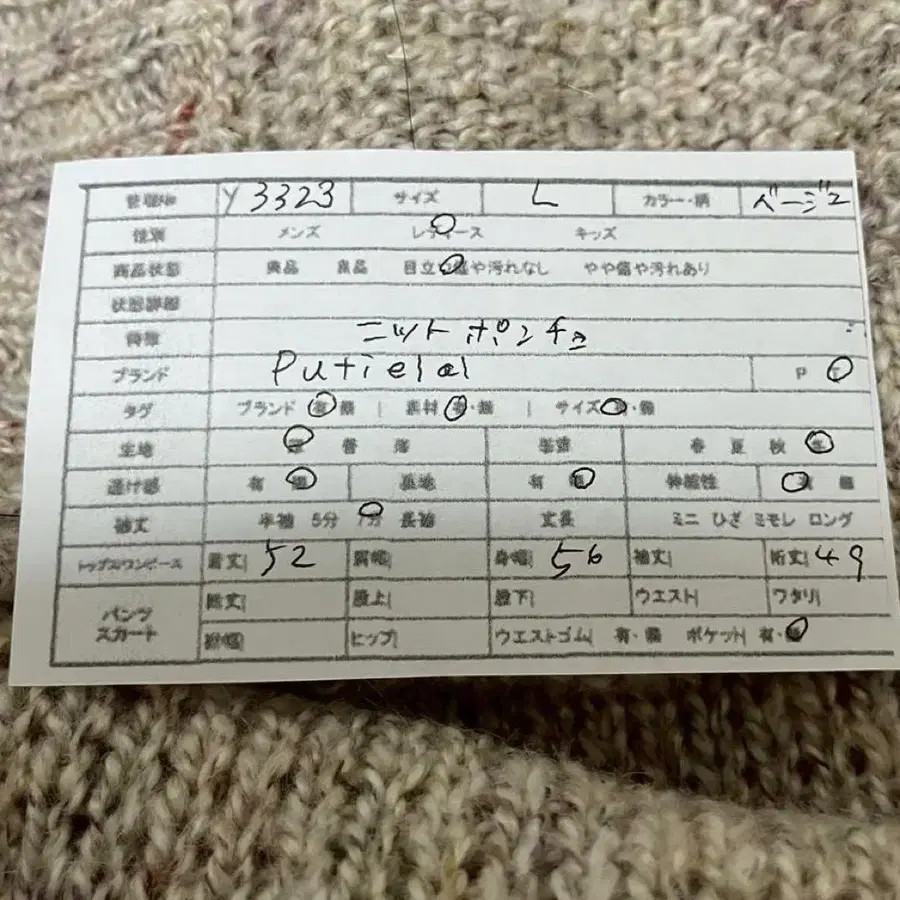 管理No Y3323 サイズ L カラー・柄 ベージュ
性別 メンズ レディース キッズ
商品状態 美品 良品 目立つ傷や汚れなし やや傷や汚れあり
状態詳細
特徴 ニットポンチョ
ブランド Putielal P
タグ ブランド 有・無 | 素材 有・無 | サイズ 有・無
生地 厚 普 薄 季節 春 夏 秋 冬
透け感 有 無 裏地 有 無 伸縮性 有 無
袖丈 半袖 5分 7分 長袖 丈長 ミニ ひざ ミモレ ロング
トップス/ワンピース 着丈| 52 肩幅| 身幅| 56 袖丈| 裄丈| 49
パンツ スカート 総丈| 股上| 股下| ウエスト| ワタリ|
裾幅| ヒップ| ウエストゴム| 有・無 ポケット| 有・無